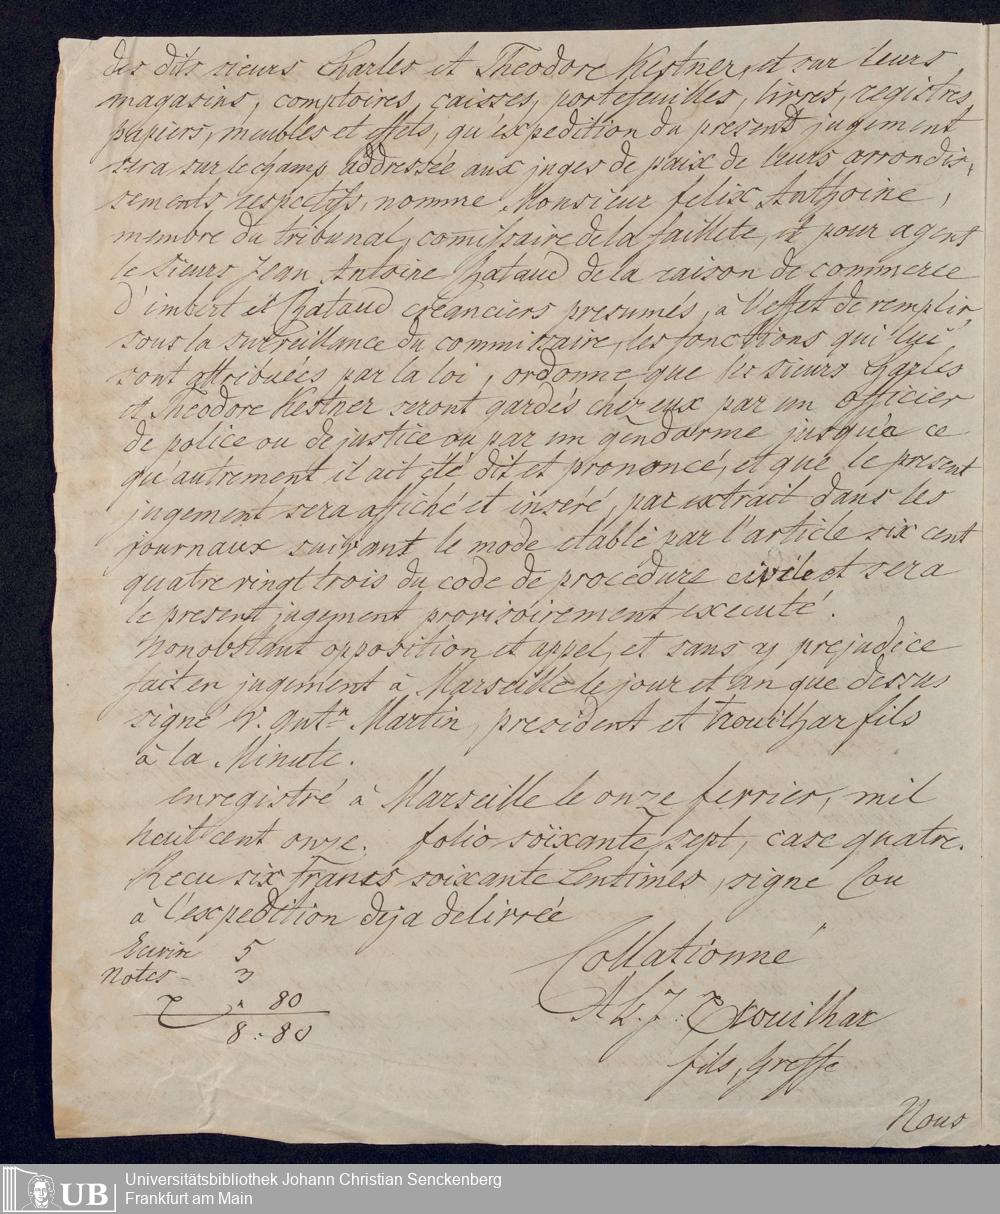 des dits sieurs Charles et Theodore Kestner, et sur leurs
magasins, comptoires, caisses, portefeuilles, livres, registres,
papiers, meubles et effets, qu'expedition du present jugement
sera sur le champ addressée aux juges de paix de leurs arrondis-
sements respectifs, nomme Monsieur felix Anthoine,
membre du tribunal, comissaire de la faillete, et pour agent
le Sieurs Jean Antoine Chataud de la raison de commerce
D'imbert et Chataud creanciers presumés, à l'effet de remplir
sous la surveillance du commissaire, les fonctions qui lui
sont attribuées par la loi, ordonne que les sieurs Charles
et Theodore Kestner seront gardés chez eux par un officier
de police ou de justice ou par un gendarme jusqu'à ce
qu'autrement il ait été dit et prononcé, et que le present
jugement sera affiché et inseré, par extrait dans les
journaux suivant le mode etabli par l'article six cent
quatre vingt trois du code de procedure civile et sera
le present jugement provisoirement executé.
Nonobstant opposition et appel, et sans y prejudice
fait en jugement à Marseille le jour et an que dessus
signé V. Antn Martin, president et Trouilhar fils
à la Minute.
enregistré à Marseille le onze fevrier, mil
huit cent onze. folio soixante sept, case quatre.
Recu six francs soixante Centimes, signe Cou
à l'expedition deja delivrée
Ecrire 5
Notes - 3
80
8.80
Collationné
A L. J. Trouilhar
fils, Greffe
Nous
Universitätsbibliothek Johann Christian Senckenberg
Frankfurt am Main
UB